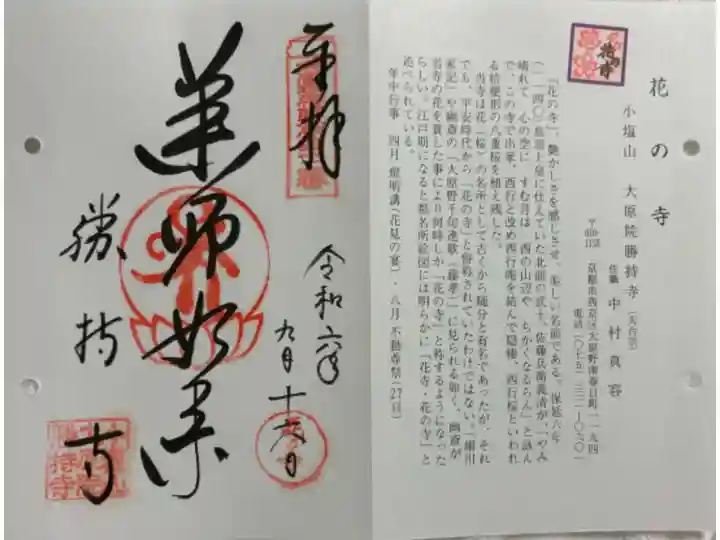 奉拝
令和六年
九月十六日
薬師如来
勝持寺
花の寺
花の寺
小塩山 大原院勝持寺(天台宗)
住職 中村真容
京都市西京区大原野南春日町一一九四
「花の寺」、艶かしさを感じさせ、美しい名前である。保延六年
(一一四〇)鳥羽上皇に仕えていた北面の武士、佐藤兵衛義清が、「やみ
晴れて 心の空に すむ月は 西の山辺や ちかくなるらん」と詠ん
で、この寺で出家、西行と改め西行庵を結んで隠棲、西行桜といわれ
る枝垂形の八重桜を植え残した。
当寺は花(桜)の名所として古くから随分と有名であったが、それ
でも、平安時代から「花の寺」と俗称されていたわけではない。細川
家記」や幽斎の「大原野千句連歌(藤孝)」に見られる如く、幽斎が
当寺の花を賞した事により何時しか「花の寺」と称するようになった
らしい。江戸期になると都名所絵図には明らかに「花寺・花の寺」と
述べられている。
年中行事 四月 (花見の宴)、八月 不動尊祭(27日)